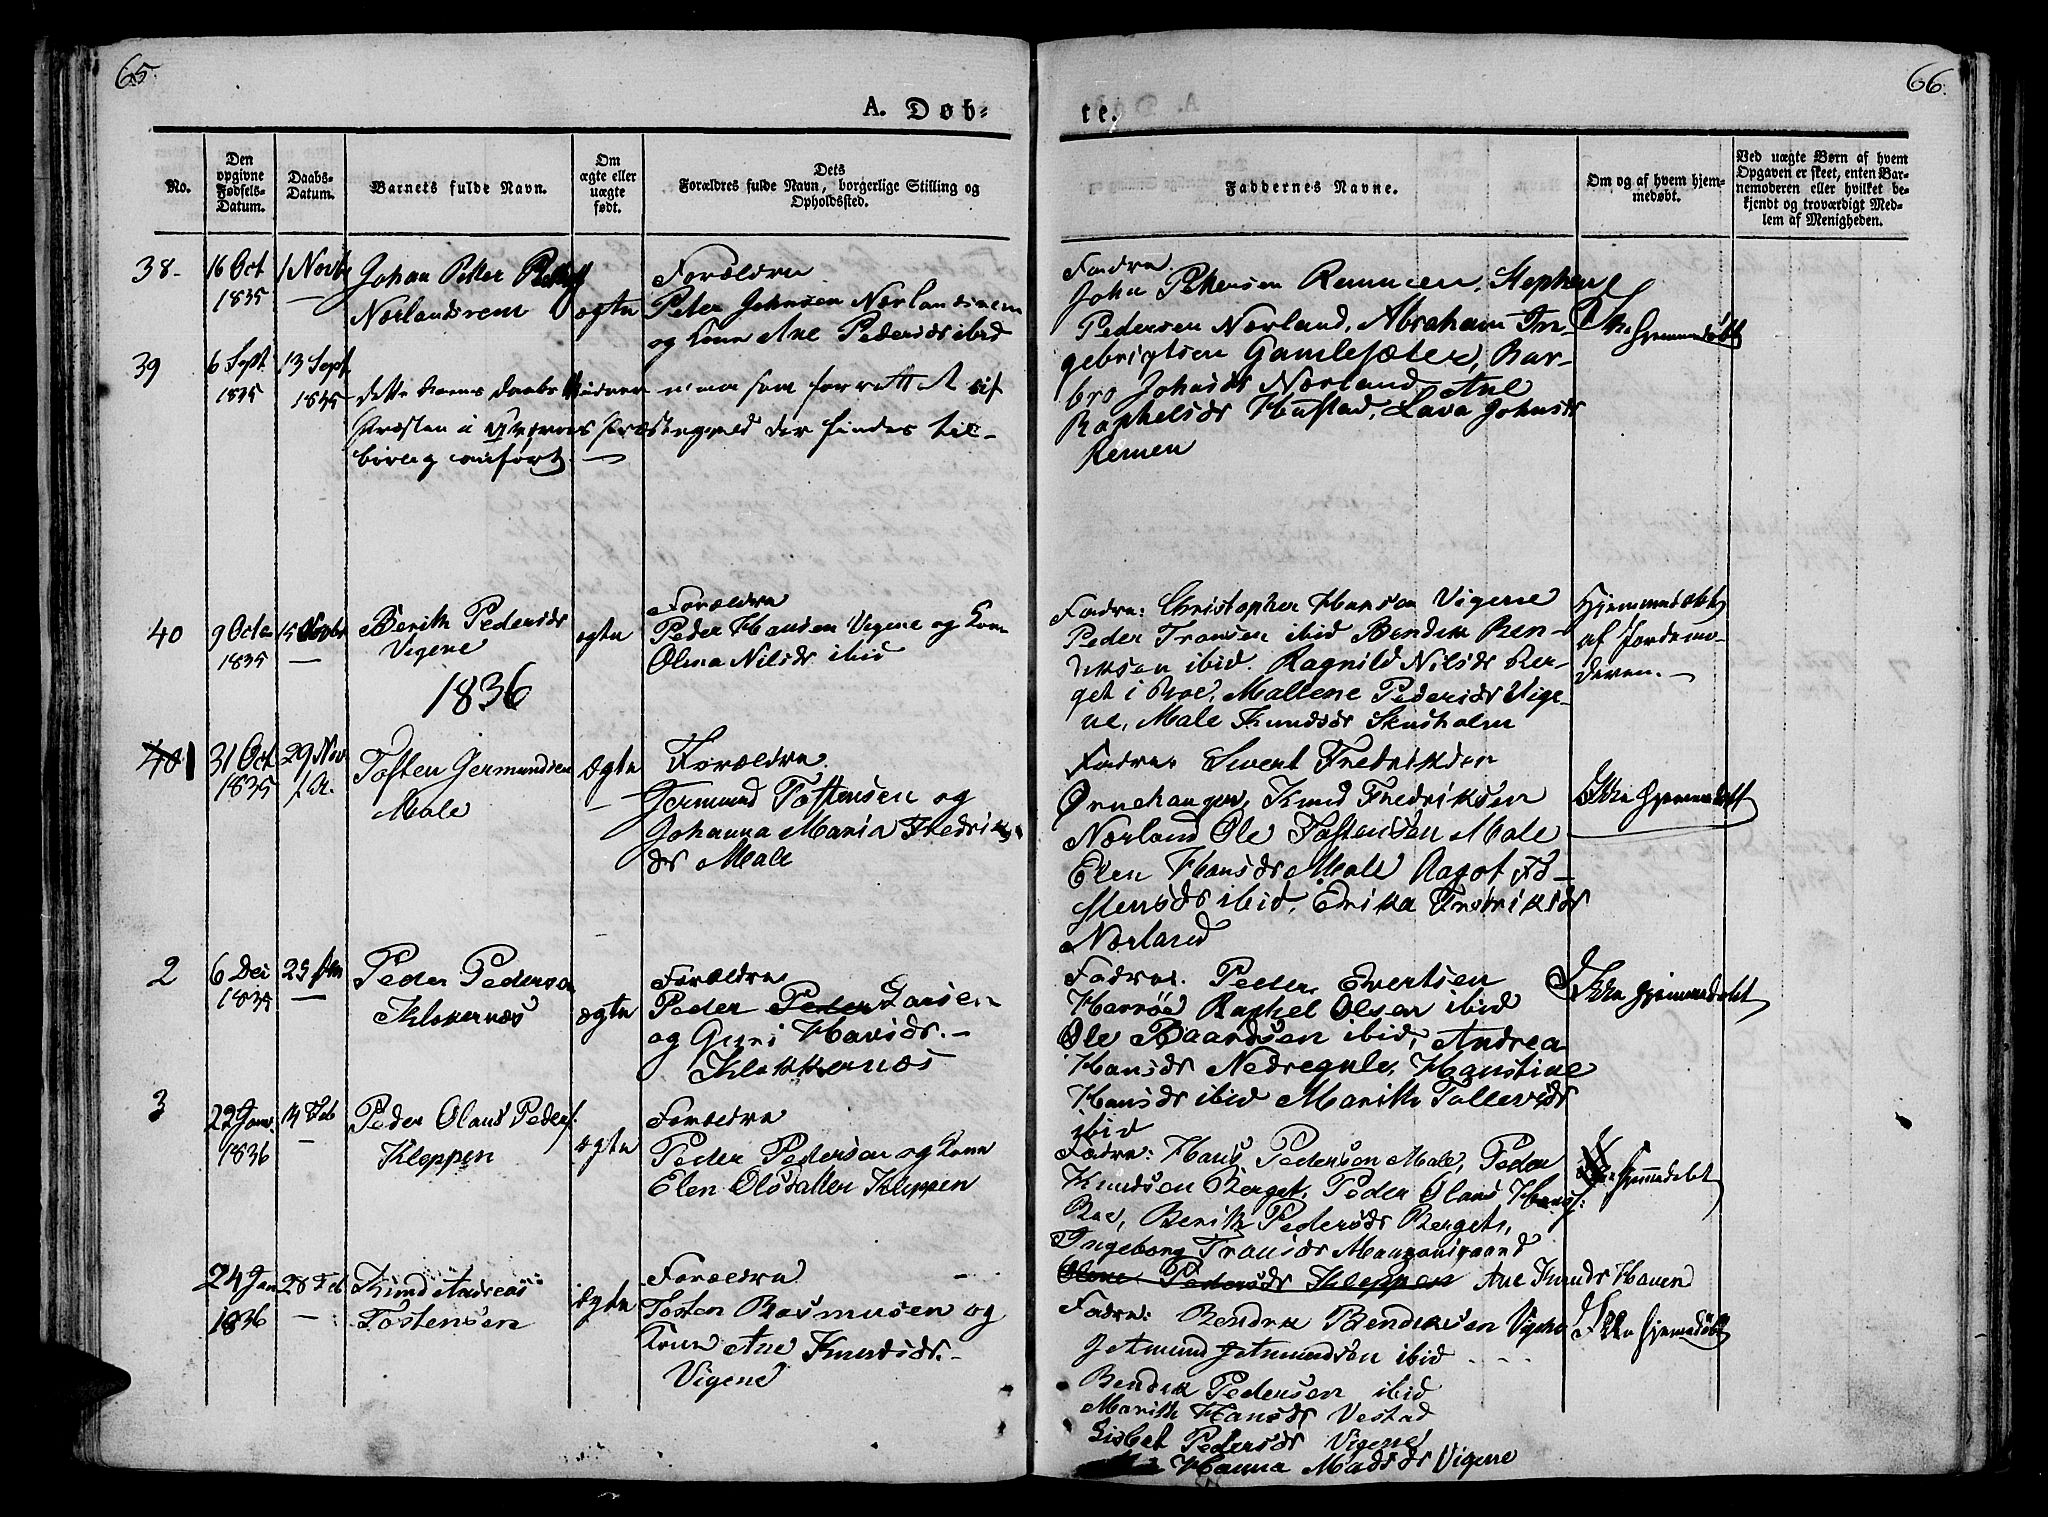 65.
66.
A. Døb-
te.
No.
Den opgivne Fødsels-Datum.
Daabs-Datum.
Barnets fulde Navn.
Om ægte eller uægte født.
Dets Forældres fulde Navn, borgerlige Stilling og Opholdssted.
Faddernes Navne.
Om og af hvem hjemmedøbt.
Ved uægte Børn af hvem Opgaven er skeet, enten Barnemoderen eller hvilket bekjendt og troværdigt Medlem af Menigheden.
38-
16 Oct
1835
1 Novbr
Johan Petter
Norlandsrem
ægte
Forældre
Peter Johnsen Norlandsrem
og Kone Ane Pedersdr ibid
Fadre.
John Petersen Remmen, Stephen
Pedersen Norland, Abraham In-
gebrigtsen Gamlesæter, Bar-
bro Johnsdr Norland, Ane
Raphelsdr Hustad, Lava Johnsdr
Remen
Ikke Hjemmedøbt
39
6 Sept
1835
13 Sept
1835
dette Barns Daabs som forrettet af
Præsten i Præstegjeld der findes til-
børlig anført.
40
9 Octo
1835
15 Novbr
Berith Pedersdr
Vigene
ægte
Forældre
Peder Hansen Vigene og Kone
Olina Nilsdr ibid
Fadre: Christopher Hansen Vigene
Peder Transen ibid Bendik Ben-
diksen ibid. Ragnild Nilsdr Ber-
get i Boe, Maltene Pedersdr Vige-
ne, Male Knudsdr Skusholm
Hjemmedøbt
af Jordemo-
deren.-
1836
1
31 Oct
1835
29 Nov
f.A.
Tosten Germundsen
Male
ægte
Forældre
Germund Tostensen og
Johanna Maria Fredriks
dr Male
Fadre Sivert Fredriksen
Ørnehanger, Knud Fredriksen
Norland Ole Tostensen Male
Elen Hansdr Male Aagot To-
stensdr ibid, Edrika Fredriksdr
Norland
Ikke Hjemmedøbt
2
6 Dec
1835
25 Jan
Peder Pedersen
Klokernæs
ægte
Forældre
Peder Peder Larsen
og Guri Hansdr.-
Klokkernæs
Fadre. Peder Evertsen
Harrøe Raphel Olsen ibid
Ole Baardsen ibid, Andrea
Hansdr Nedregule, Hanstine
Hansdr ibid Marith Tollevsdr
ibid
Ikke Hjemmedøbt
3
22 Janu
1836
14 Feb
Peder Olaus Peders:
Kleppen
ægte
Forældre
Peder Pedersen og Kone
Elen Olsdatter Kleppen
Fadre: Hans Pedersen Male, Peder
Knudsen Berget, Peder Olaus Hansf:
Boe, Berith Pedersdr Berget,
Ingeborg Transdr Mangansgaard
Olene Pedersdr Kleppen Ane Knudsdr Haven
Hjemmedøbt
24 Jan
1836
28 Feb
Knud Andreas
Tostensen
ægte
Forældre
Tosten Rasmusen og
Kone Ane Knudsdr.-
Vigene
Fadre: Bendik Bendiksen Vigene
Amund Amundsen ibid
Bendik Pedersen ibid
Marith Hansdr Vestad
Lisbet Pedersdr Vigene
Hanna Madsdr Vigene
Ikke Hjemmedøbt